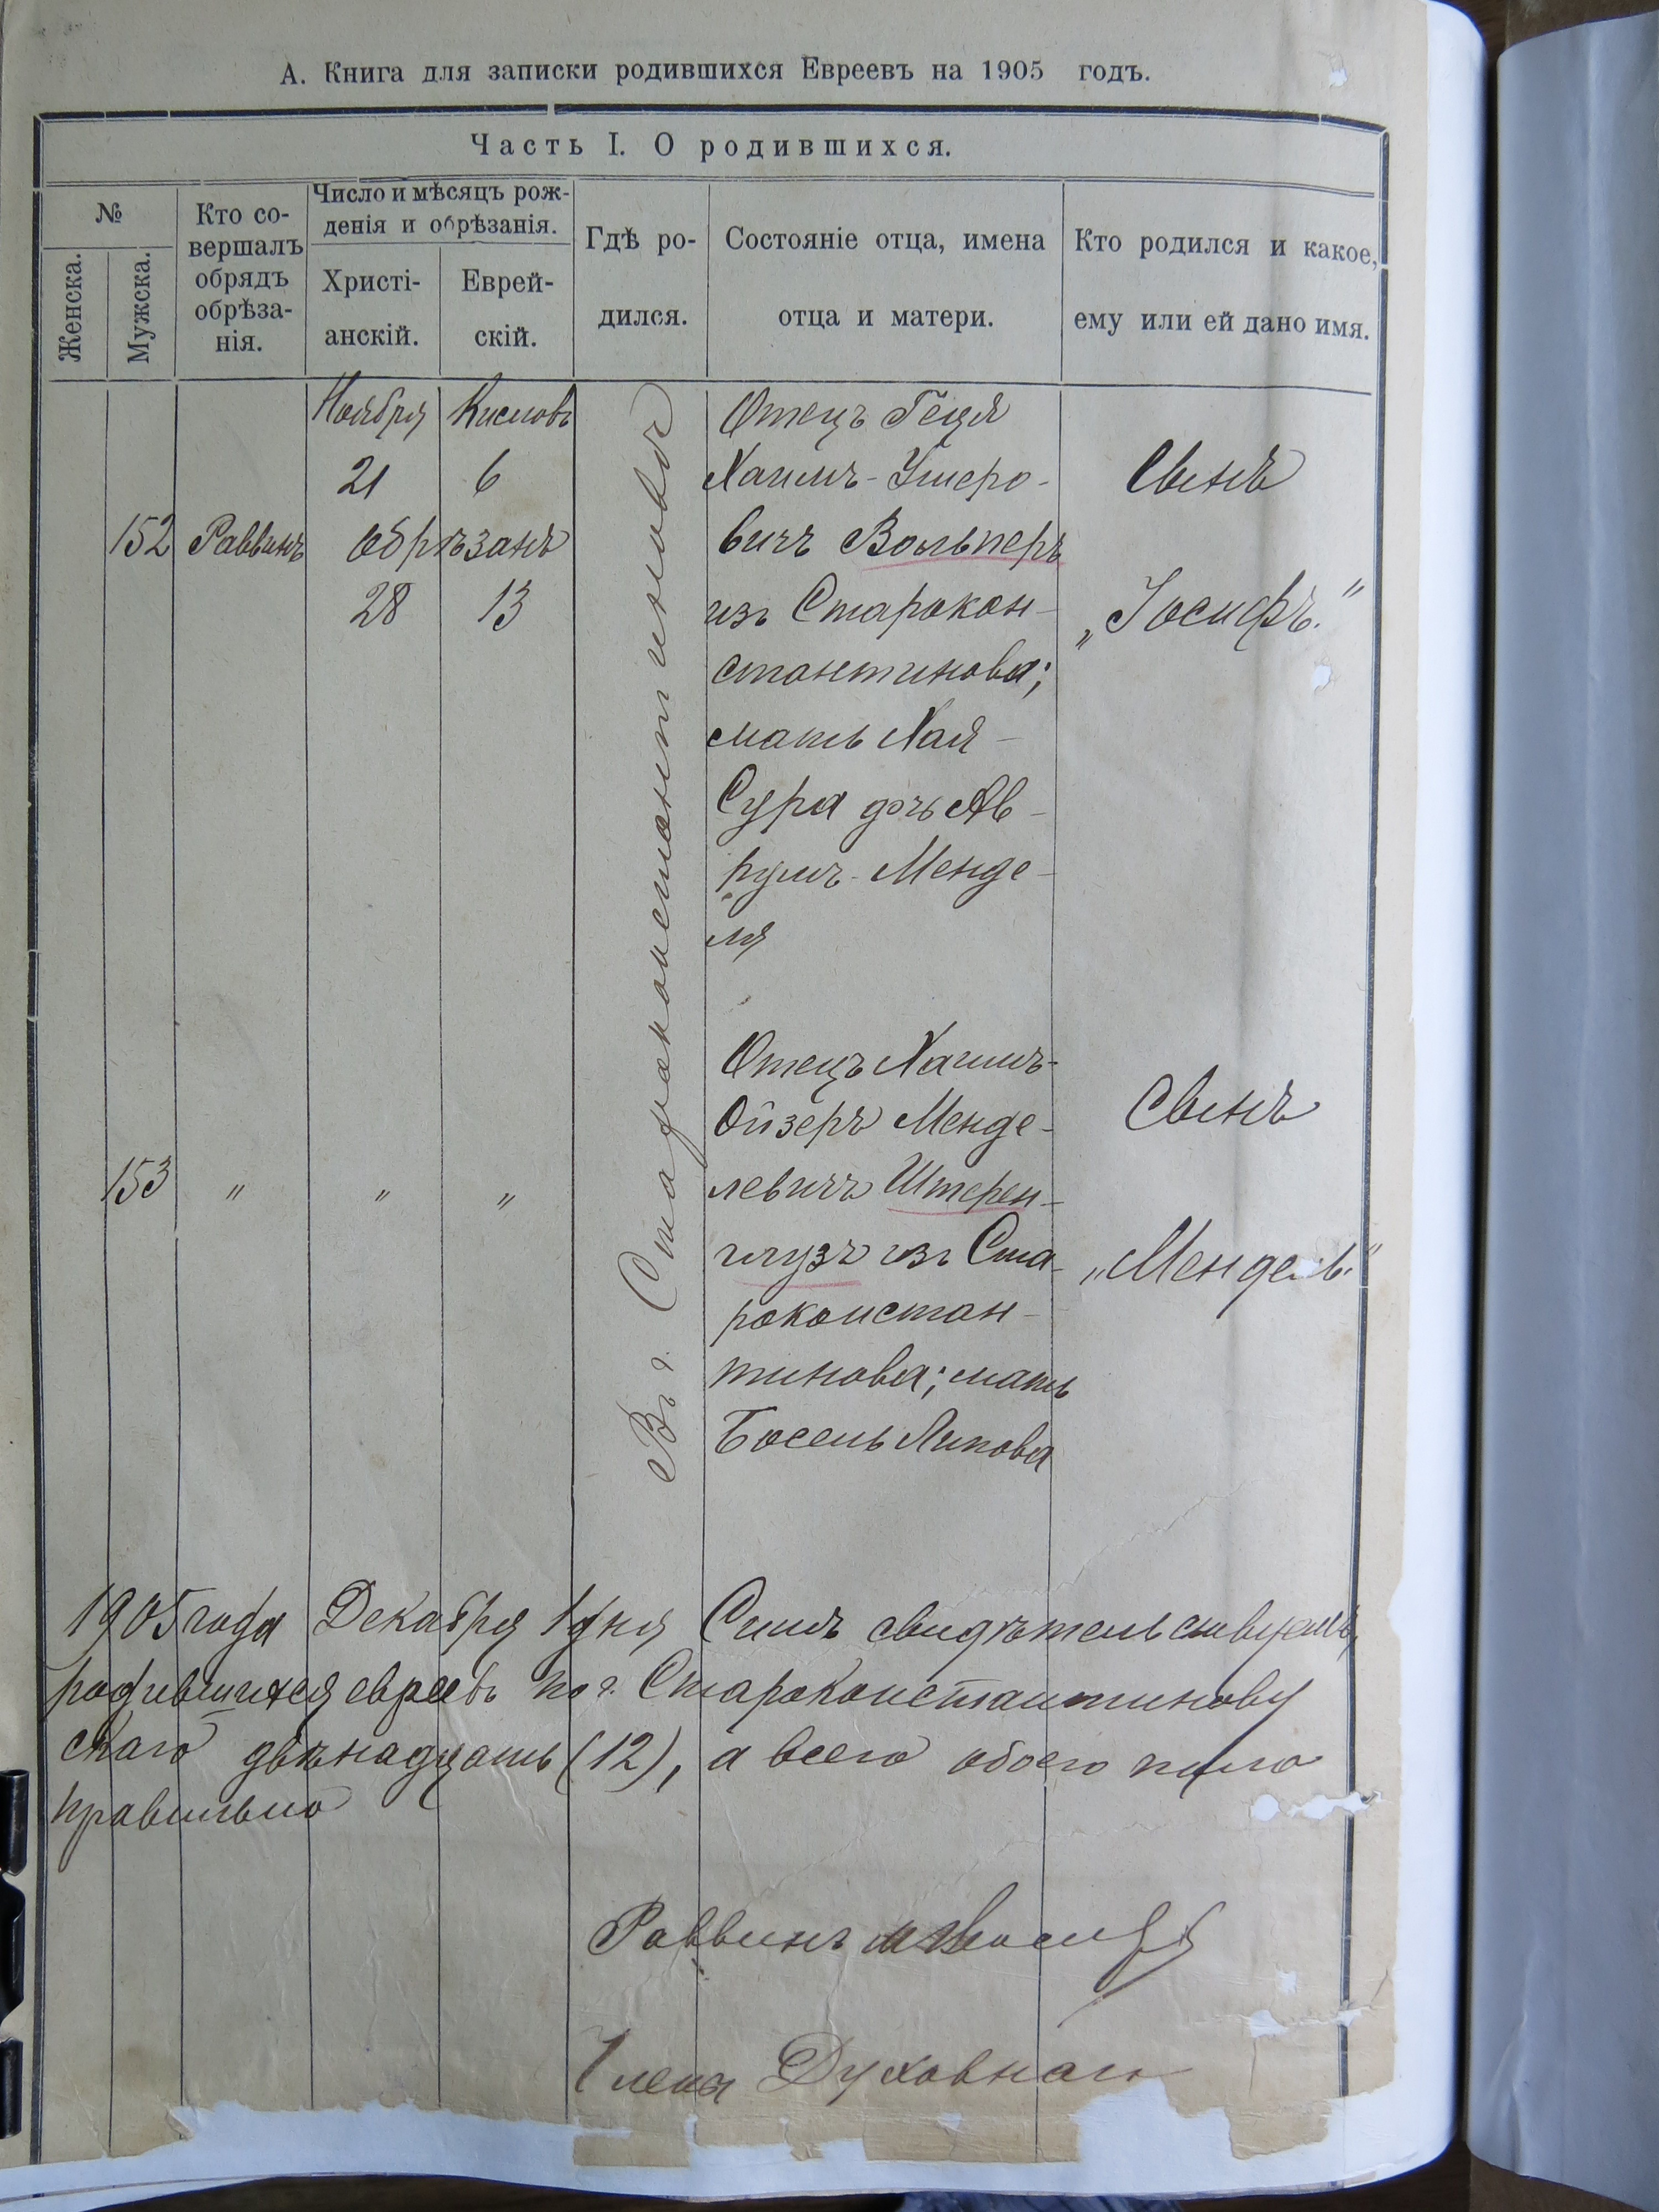 А. Книга для записки родившихся Евреевъ на 1905 годъ.
Часть I. О родившихся.
№
Женска.
Мужска.
Кто со-
вершалъ
обрядъ
обрѣза-
нія.
Число и мѣсяцъ рож-
денія и обрѣзанія.
Христі-
анскій.
Еврей-
скій.
Гдѣ ро-
дился.
Состояніе отца, имена
отца и матери.
Кто родился и какое,
ему или ей дано имя.
152
Раввинъ
Ноября Кислевъ
21 6
обрѣзанъ
28 13
Въ г. Староконстантиновѣ
Отецъ Геця
Хаимъ-Ушеро-
вичъ Вольперъ
изъ Старокон-
стантинова;
мать Хая-
Сура дочь Ав-
румъ-Менде-
ля
Сынъ
„Іосифъ.“
153 „ „ „
Отецъ Хаимъ-
Ойзеръ Менде-
левичъ Штерен-
шузъ изъ Ста-
роконстан-
тинова; мать
Босель Липова
Сынъ
„Мендель.“
1905 года Декабря 1 дня Симъ свидѣтельствуемъ,
родившихся евреевъ по г. Староконстантинову
скаго двѣнадцать (12), а всего обоего пола
правильно
Раввинъ
Члены Духовнаго